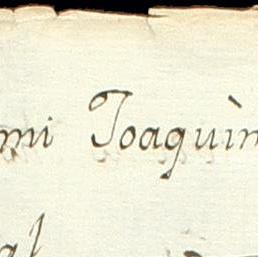 mi Joaquìn
al